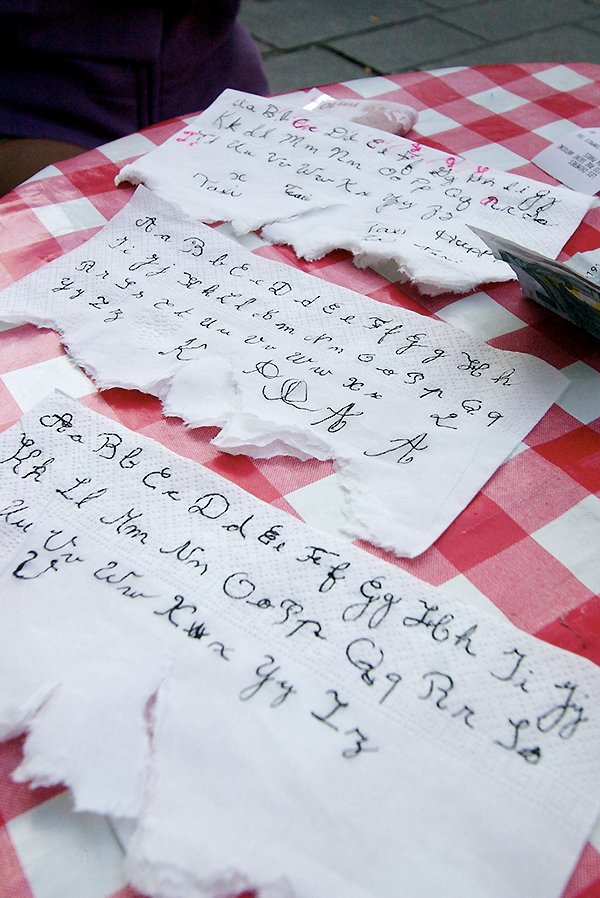 Aa Bb Cc Dd
Kk Ll Mm Nn Oo Pp Qq Rr
Tt Uu Vv Ww Xx Yy Zz
x
Taxi
Taxi
Aa Bb Cc Dd Ee Ff Gg Hh
Ii Jj Kk Ll Mm Nn Oo Pp Qq
Rr Ss Tt Uu Vv Ww Xx
Yy Zz
K Q A 2 A
Aa Bb Cc Dd Ee Ff Gg Hh Ii Jj
Kk Ll Mm Nn Oo Pp Qq Rr Ss
Uu Vv Ww Xx Yy Zz
V